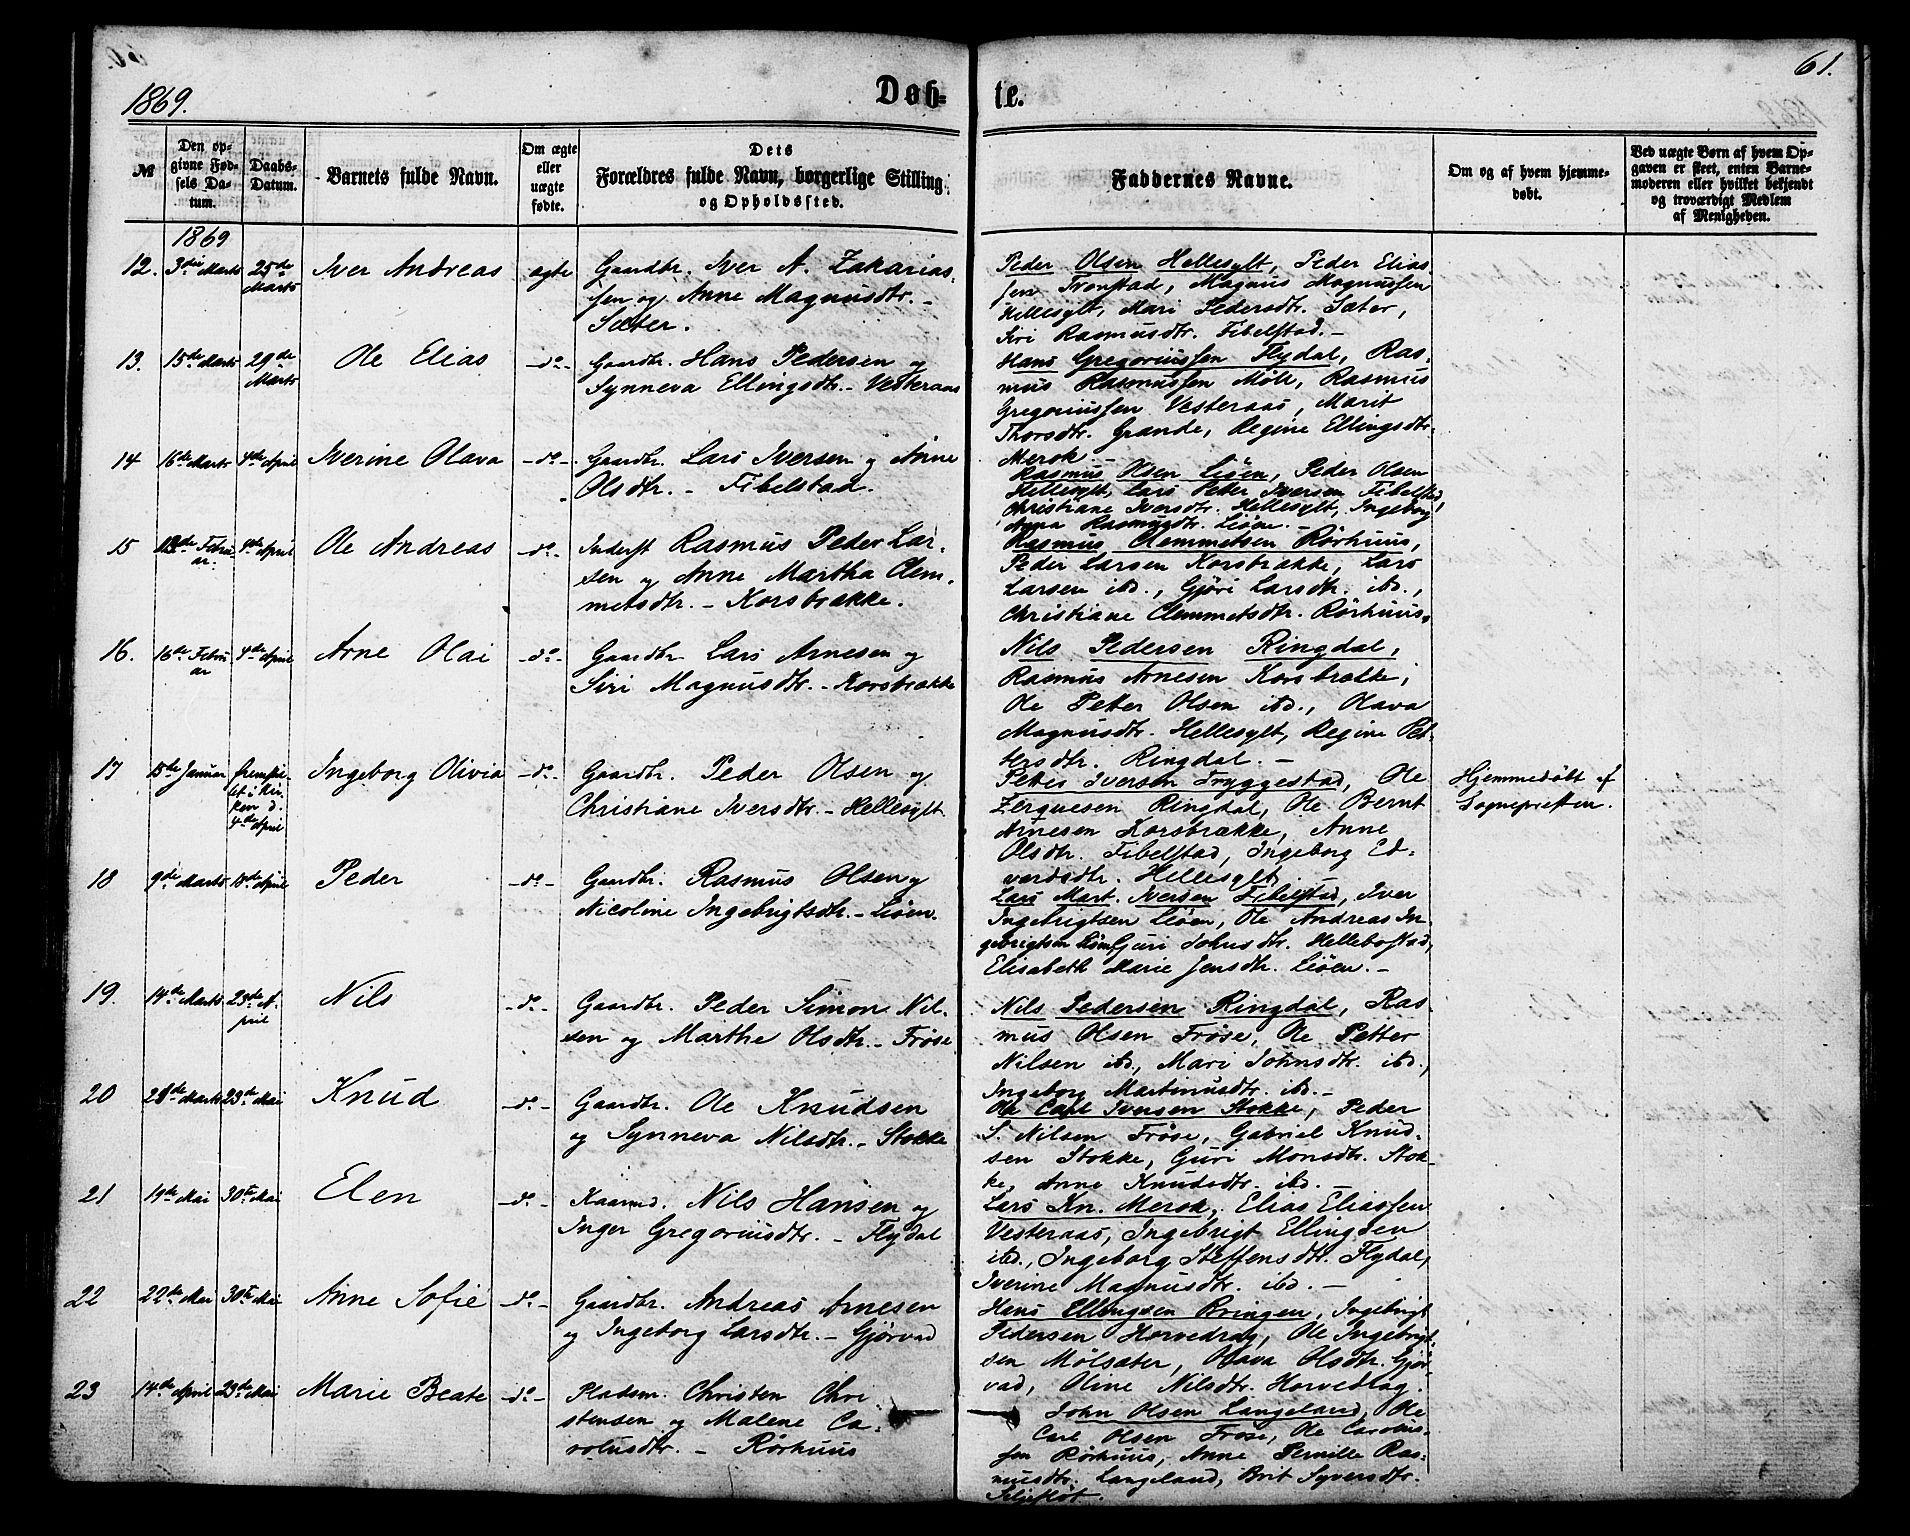 61.
1869.
Døb-
te.
№
Den op-
givne Fød-
sels Da-
tum.
Daabs-
Datum.
Barnets fulde Navn.
Om ægte
eller
uægte
fødte.
Dets
Forældres fulde Navn, borgerlige Stilling
og Opholdssted.
Faddernes Navne.
Om og af hvem hjemme-
døbt.
Ved uægte Børn af hvem Op-
gaven er skeet, enten Barne-
moderen eller hvilket bekjendt
og troværdigt Medlem
af Menigheden.
1869
12. 3die Marts 25de Marts Iver Andreas ægte
Gaardbr. Iver A. Zakarias-
sen og Anne Magnusdtr. -
Sæter.
Peder Olsen Hellesylt, Peder Elias-
sen Tronstad, Magnus Magnussen
Hellesylt, Mari Pedersdtr. Sæter,
Siri Rasmusdtr. Fibelstad. -
13. 15de Marts 29de Marts Ole Elias -do-
Gaardbr. Hans Pedersen og
Synneva Ellingsdtr. - Vesteraas
Hans Gregoriussen Flydal, Ras-
mus Rasmussen Møll, Rasmus
Gregoriussen Vesteraas, Marit
Thorsdtr. Grande, Regine Ellingsdtr.
Merok. -
14 16de Marts 4de April Iverine Olava -do-
Gaardbr. Lars Iversen og Anne
Olsdtr. - Fibelstad.
Rasmus Olsen Liøen, Peder Olsen
Hellesylt, Lars Peter Iversen Fibelstad,
Christiane Iversdtr. Hellesylt, Ingeborg
Anna Rasmusdtr. Liøen. -
15 Februar. 4de April Ole Andreas -do-
Inderst Rasmus Peder Lar-
sen og Anne Martha Clem-
metsdtr. - Korsbrække.
Rasmus Clemmetsen Rørhuus,
Peder Larsen Korsbrække, Lars
Larsen ibd., Gjøri Larsdtr. ibd.,
Christiane Clemmetsdtr. Rørhuus.
16. 16de Februar 4de April Arne Olai -do-
Gaardbr Lars Arnesen og
Siri Magnusdtr. - Korsbrække
Nils Pedersen Ringdal,
Rasmus Arnesen Korsbrække,
Ole Petter Olsen ibd., Olava
Magnusdtr. Hellesylt, Regine Pet-
tersdtr. Ringdal. -
17 15de Januar fremstil-
let i Kir-
ken d.
4de April Ingeborg Olivia -do-
Gaardbr. Peder Olsen og
Christiane Iversdtr. - Hellesylt
Petter Iversen Tryggestad, Ole
Zerquesen Ringdal, Ole Bernt
Arnesen Korsbrække, Anne
Olsdtr. Fibelstad, Ingeborg Ed-
vardsdtr. Hellesylt
Hjemmedøbt af
Sognepresten.
18 9de Marts 18de April Peder -do-
Gaardbr. Rasmus Olsen og
Nicoline Ingebrigtsdtr. - Liøen.
Lars Mart. Iversen Fibelstad, Iver
Ingebrigtsen Liøen, Ole Andreas In-
gebrigtsen Liøen, Guri Johnsdtr. Hellebostad,
Elisabeth Marie Jensdtr. Liøen. -
19. 14de Marts 23de A-
pril Nils -do-
Gaardbr. Peder Simon Nil-
sen og Marthe Olsdtr. - Frøse.
Nils Pedersen Ringdal, Ras-
mus Olsen Frøse, Ole Petter
Nilsen ibd, Mari Johnsdtr. ibd.,
Ingeborg Martinusdtr. ibd. -
20 28de Marts 23de Mai Knud -do-
Gaardbr. Ole Knudsen
og Synneva Nilsdtr. - Stokke
Ole Carl Iversen Stokke, Peder
S. Nilsen Frøse, Gabriel Knud-
sen Stokke, Guri Monsdtr. Stok-
ke, Anne Knudsdtr. ibd. -
21 19de Mai 30te Mai Elen -do-
Kaarmd. Nils Hansen og
Inger Gregoriusdtr. - Flydal
Lars Kn. Merok, Elias Eliassen
Vesteraas, Ingebrigt Ellingsen
ibd., Ingeborg Steffensdtr. Flydal,
Iverine Magnusdtr. ibd. -
22 22de Mai 30te Mai Anne Sofie -do-
Gaardbr. Andreas Arnesen
og Ingeborg Larsdtr. - Gjørvad
Hans Ellingsen Bringen, Ingebrigt
Pedersen Horvedrag, Ole Ingebrigt-
sen Mølsæter, Olava Olsdtr. Gjør-
vad, Oline Nilsdtr. Horvedrag.
23 14de April 23de Mai Marie Beate -do-
Pladsm. Christen Chri
stensen og Malene Ca-
rolusdtr. - Rørhuus
John Olsen Langeland, Ole
Carl Olsen Frøse, Ole Carolus-
sen Rørhuus, Anne Pernille Ras-
musdtr. Langeland, Brit Syversdtr.